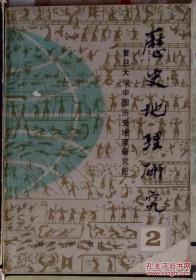 歷史地理研究
复旦大学中国历史地理研究所
2
复旦大学出版社